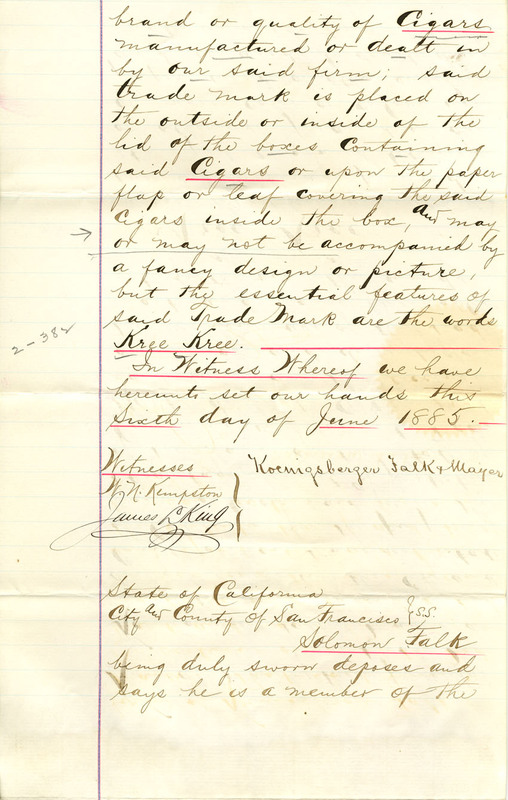 brand or quality of Cigars
manufactured or dealt in
by our said firm; said
trade mark is placed on
the outside or inside of the
lid of the boxes containing
said Cigars or upon the paper
flap or leaf covering the said
Cigars inside the box, and may
or may not be accompanied by
a fancy design or picture,
but the essential features of
said Trade Mark are the words
Kree Kree.
2-382
In Witness Whereof we have
hereunto set our hands this
Sixth day of June 1885.
Witnesses
Koenigsberger Falk & Mayer
W. N. Kempston
James L King
State of California
City and County of San Francisco } S.S.
Solomon Falk
being duly sworn deposes and
says he is a member of the